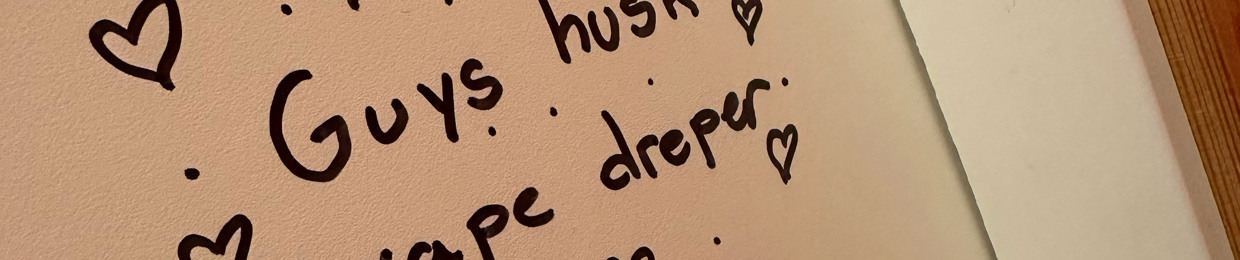 Guys husk
vape dreper.